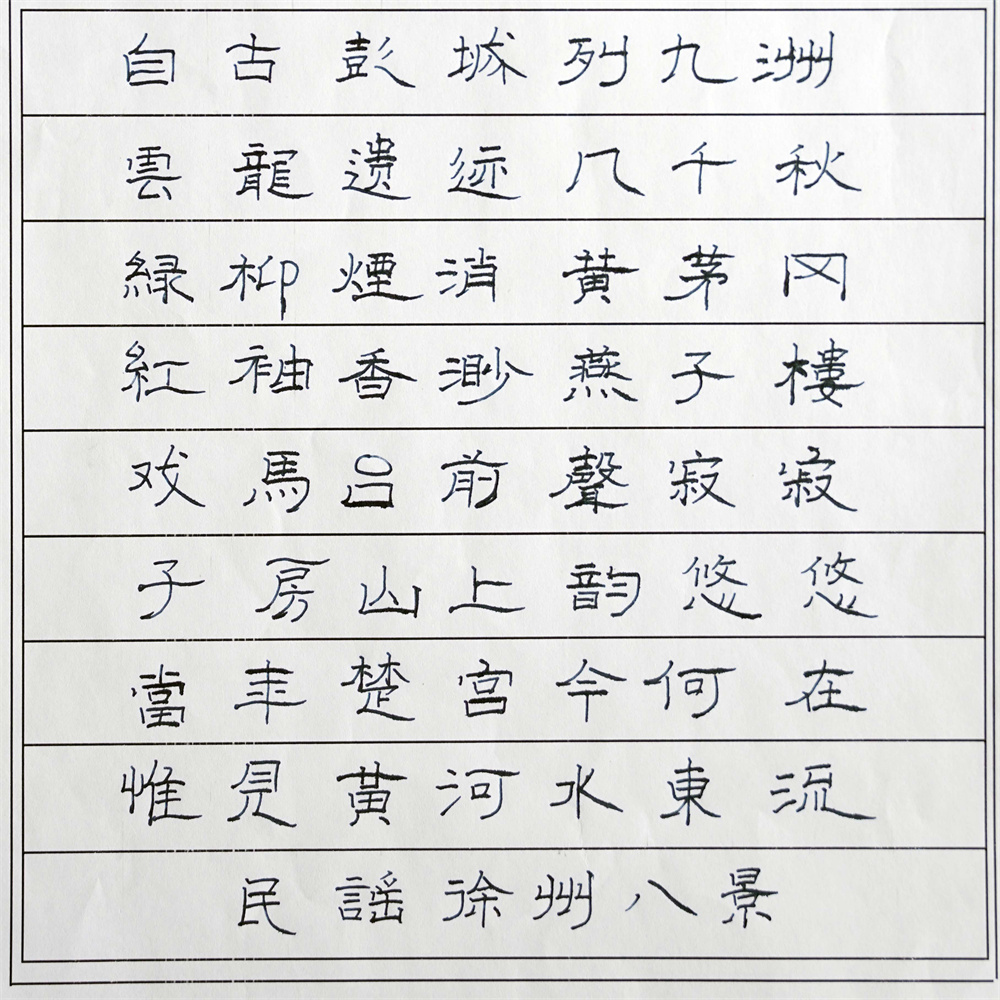 自古彭城列九洲
雲龍遗迹几千秋
緑柳煙消黄茅冈
紅袖香渺燕子樓
戏馬吕前聲寂寂
子房山上韵悠悠
當年楚宫今何在
惟見黃河水東流
民謡徐州八景